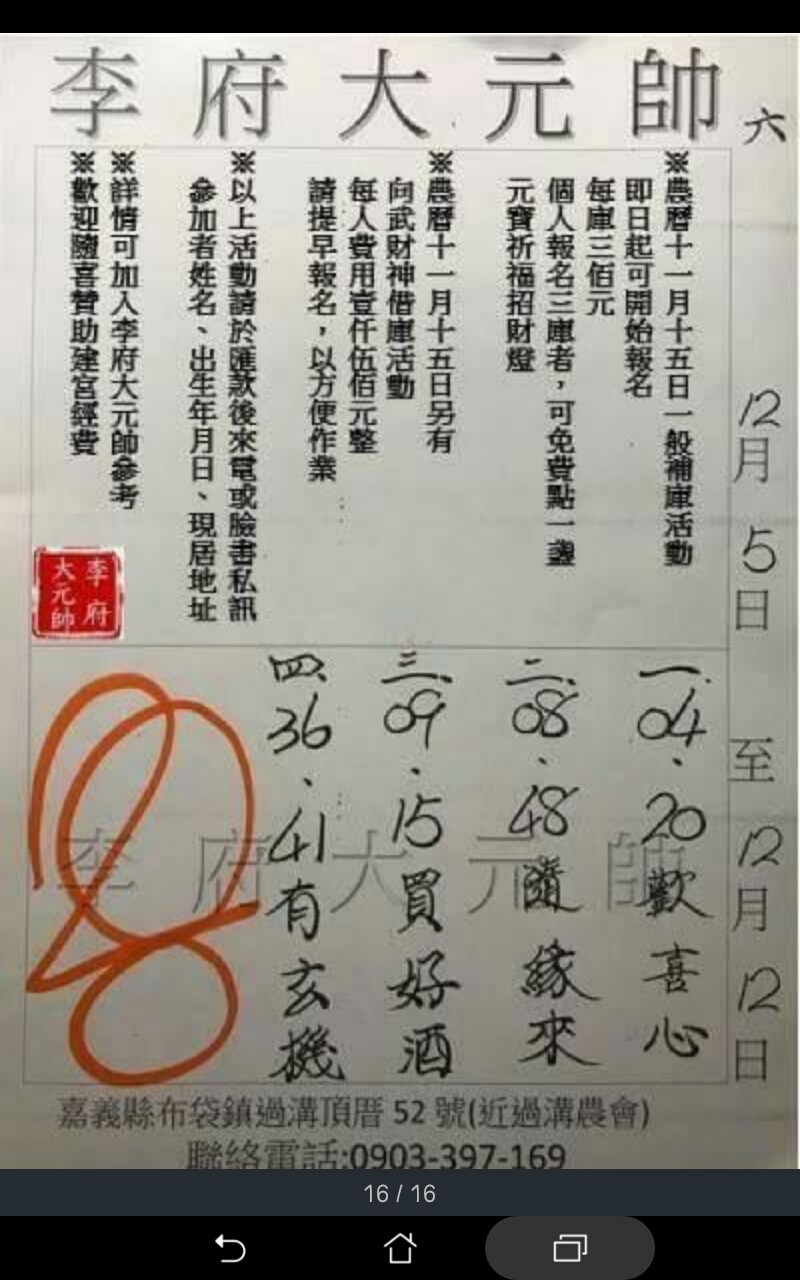 李府大元帥
六
12月5日至12月12日
※農曆十一月十五日一般補庫活動
即日起可開始報名
每庫三佰元
個人報名三庫者，可免費點一盞
元寶祈福招財燈
※農曆十一月十五日另有
向武財神借庫活動
每人費用壹仟伍佰元整
請提早報名，以方便作業
※以上活動請於匯款後來電或臉書私訊
參加者姓名、出生年月日、現居地址
※詳情可加入李府大元帥參考
※歡迎隨喜贊助建宮經費
李府
大元帥
李府大元帥
一.04、20歡喜心
二、08、48隨緣來
三、09、15買好酒
四、36、41有玄機
嘉義縣布袋鎮過溝頂厝 52 號(近過溝農會)
聯絡電話:0903-397-169
16 / 16